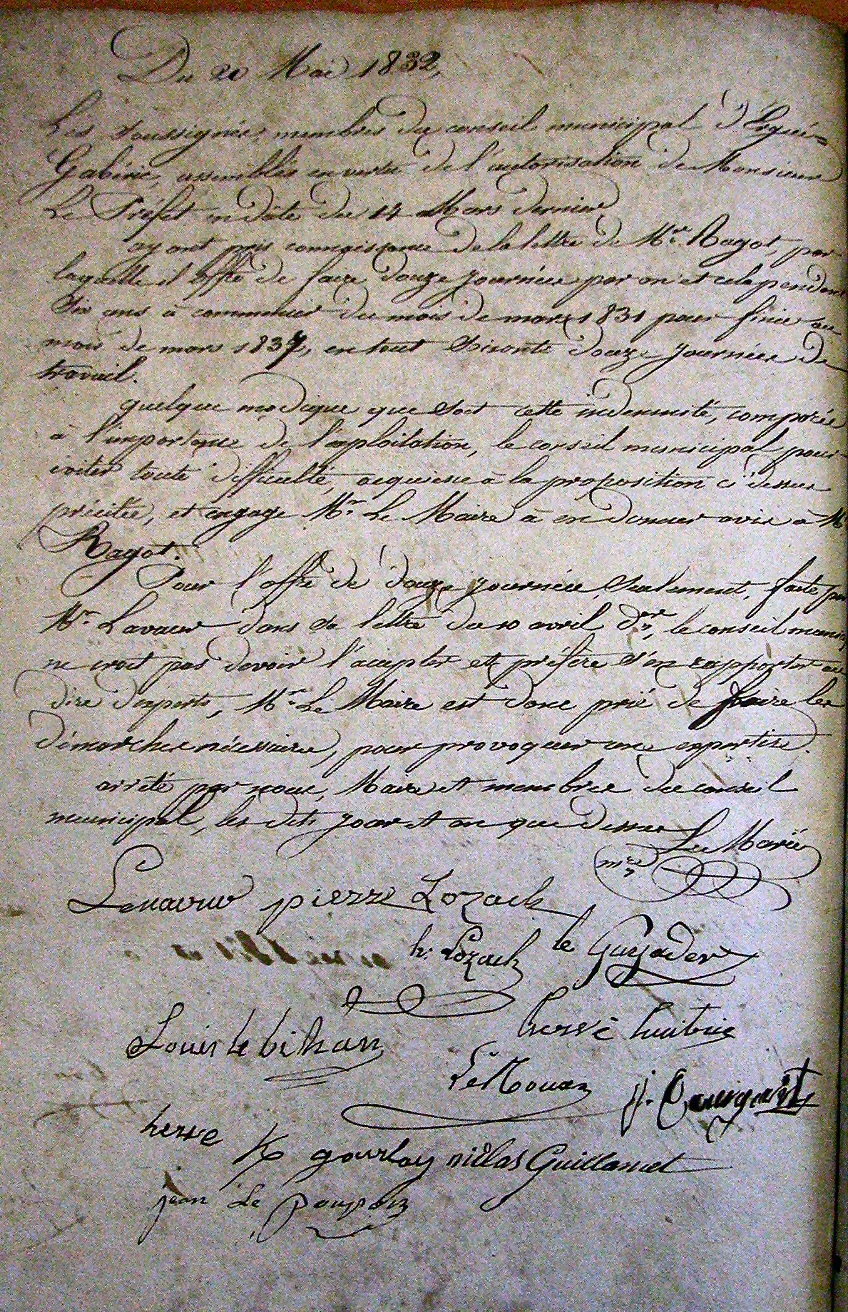 Du 20 Mai 1832,
Les Soussignés, membres du conseil municipal d'Ergué-
Gabéric, assemblés en vertu de l'autorisation de Monsieur
Le Préfet en date du 14 Mars dernier
ayant pris connaissance de la lettre de Mr. Ragot, par
laquelle il offre de faire douze journées par an et cela pendant
Six ans à commencer du mois de mars 1831 pour finir au
mois de mars 1837, en tout Soixante douze journées de
travail.
quelque modique que Soit cette indemnité, comparée
à l'importance de l'exploitation, le conseil municipal pour
éviter toute difficulté, acquiesce à la proposition ci dessus
précitée, et engage Mr. Le Maire à en donner avis à Mr
Ragot.
Pour l'offre de douze journées Seulement, faite par
Mr. Lavaur dans sa lettre du 10 avril dnr., le conseil munic
ne croit pas devoir l'accepter et préfère s'en rapporter au
dire d'experts, Mr. Le Maire est donc prié de faire les
démarches nécessaires, pour provoquer une expertise.
arrêté par nous, Maire et membres du conseil
municipal, les dits jour et an que dessus
mre
Pierre Lozach
h. Lozach le Guyader
Louis le bihan hervé
Le Nouan
hervé
gourlay Guillamet
jean Le